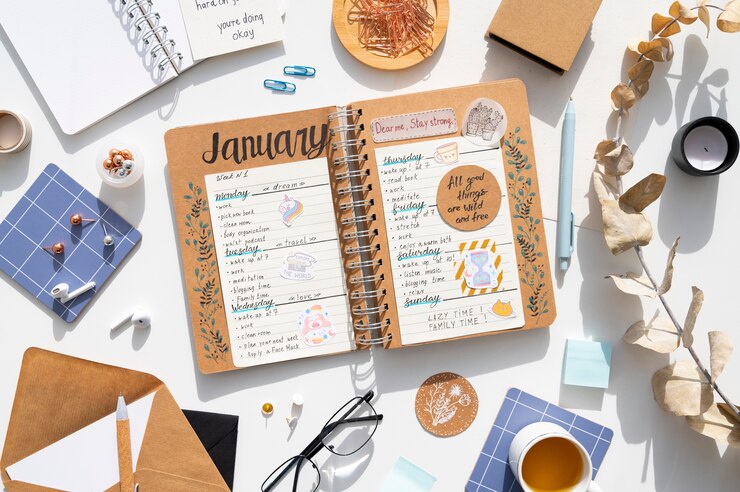 hard on yo
you're doing
okay
January
Week N1
monday
dream
• work
• pick new book
• clean room
• body organisation
• podcast
tuesday
travel
• wake up at 7
• work
• meditation
THE WORLD
• blogging time
• Family time
Wednesday
love
• wake up at 7
• work
• clean room
• plan your next week
• Apply a Face Mask
Dear me, Stay strong.
thursday
• wake up! at 7
• read book
• work
• meditate
friday
• wake up at 7
• stretch
• work
• enjoy a warm bath
Saturday
• wake up at
• listen music
• blogging time
• relax
Sunday
LAZY TIME!
FAMILY TIME
All good
things
are wild
and free